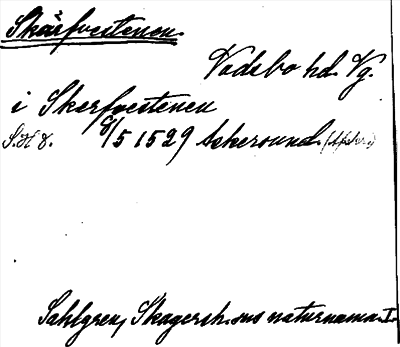 Skärfvestenen.
Vadsbo hd. Vg.
i Skerfvestenen
S.H 8. 8/5 1529 Askersund.
Sahlgren, Skagersh. sns naturnamn I.